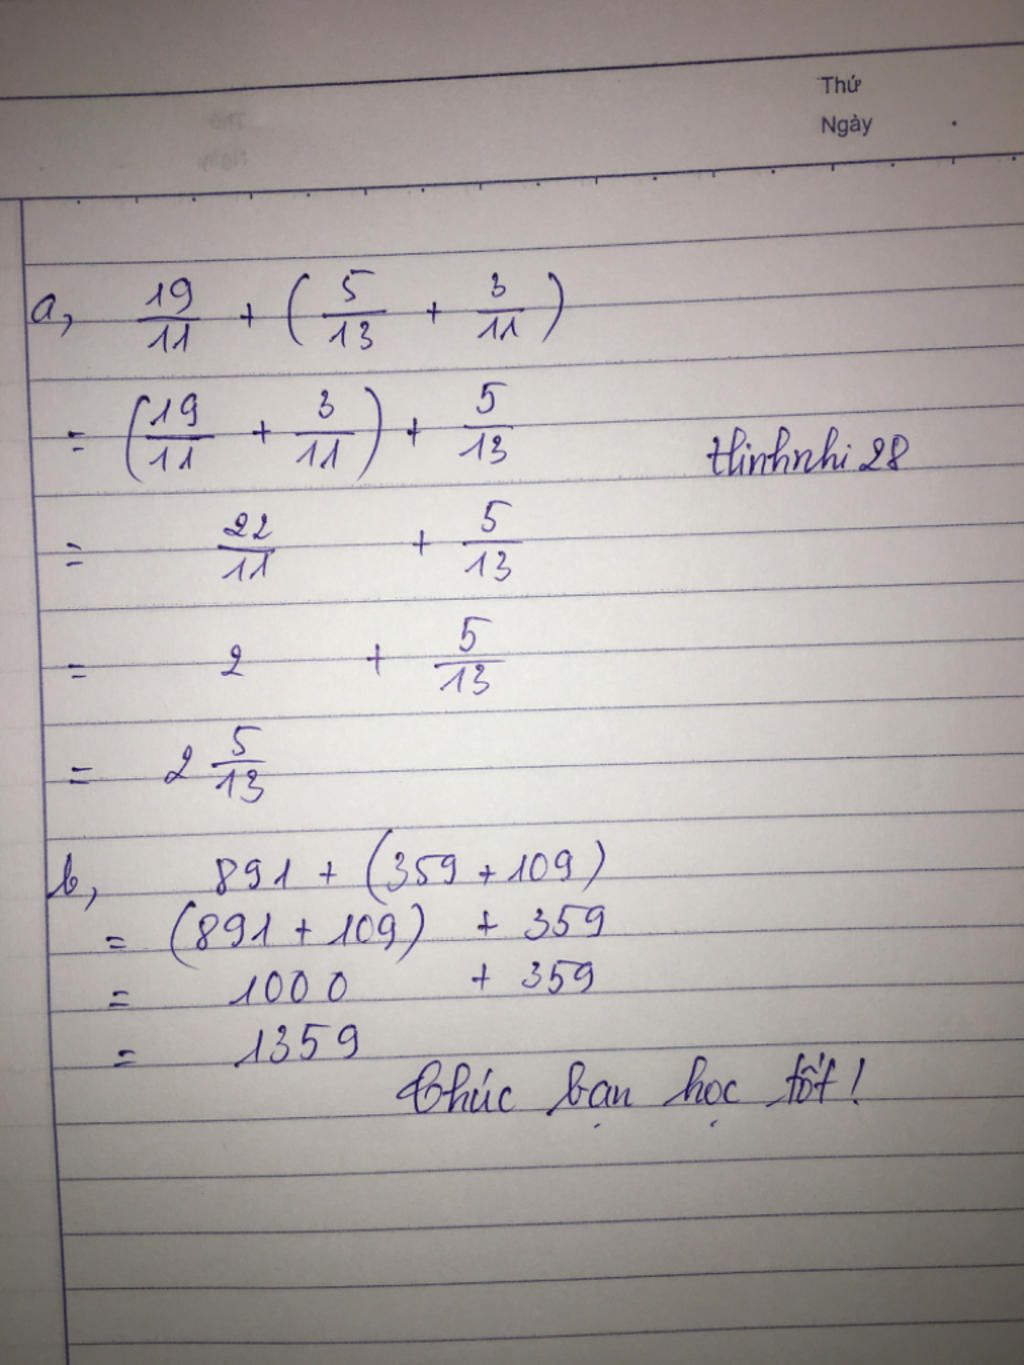 Thứ
Ngày
a, 19/11 + (5/13 + 3/11)
= (19/11 + 3/11) + 5/13
thinhnhi 28
= 22/11 + 5/13
= 2 + 5/13
= 2 5/13
b, 891 + (359 + 109)
= (891 + 109) + 359
= 1000 + 359
= 1359
Chúc bạn học tốt!